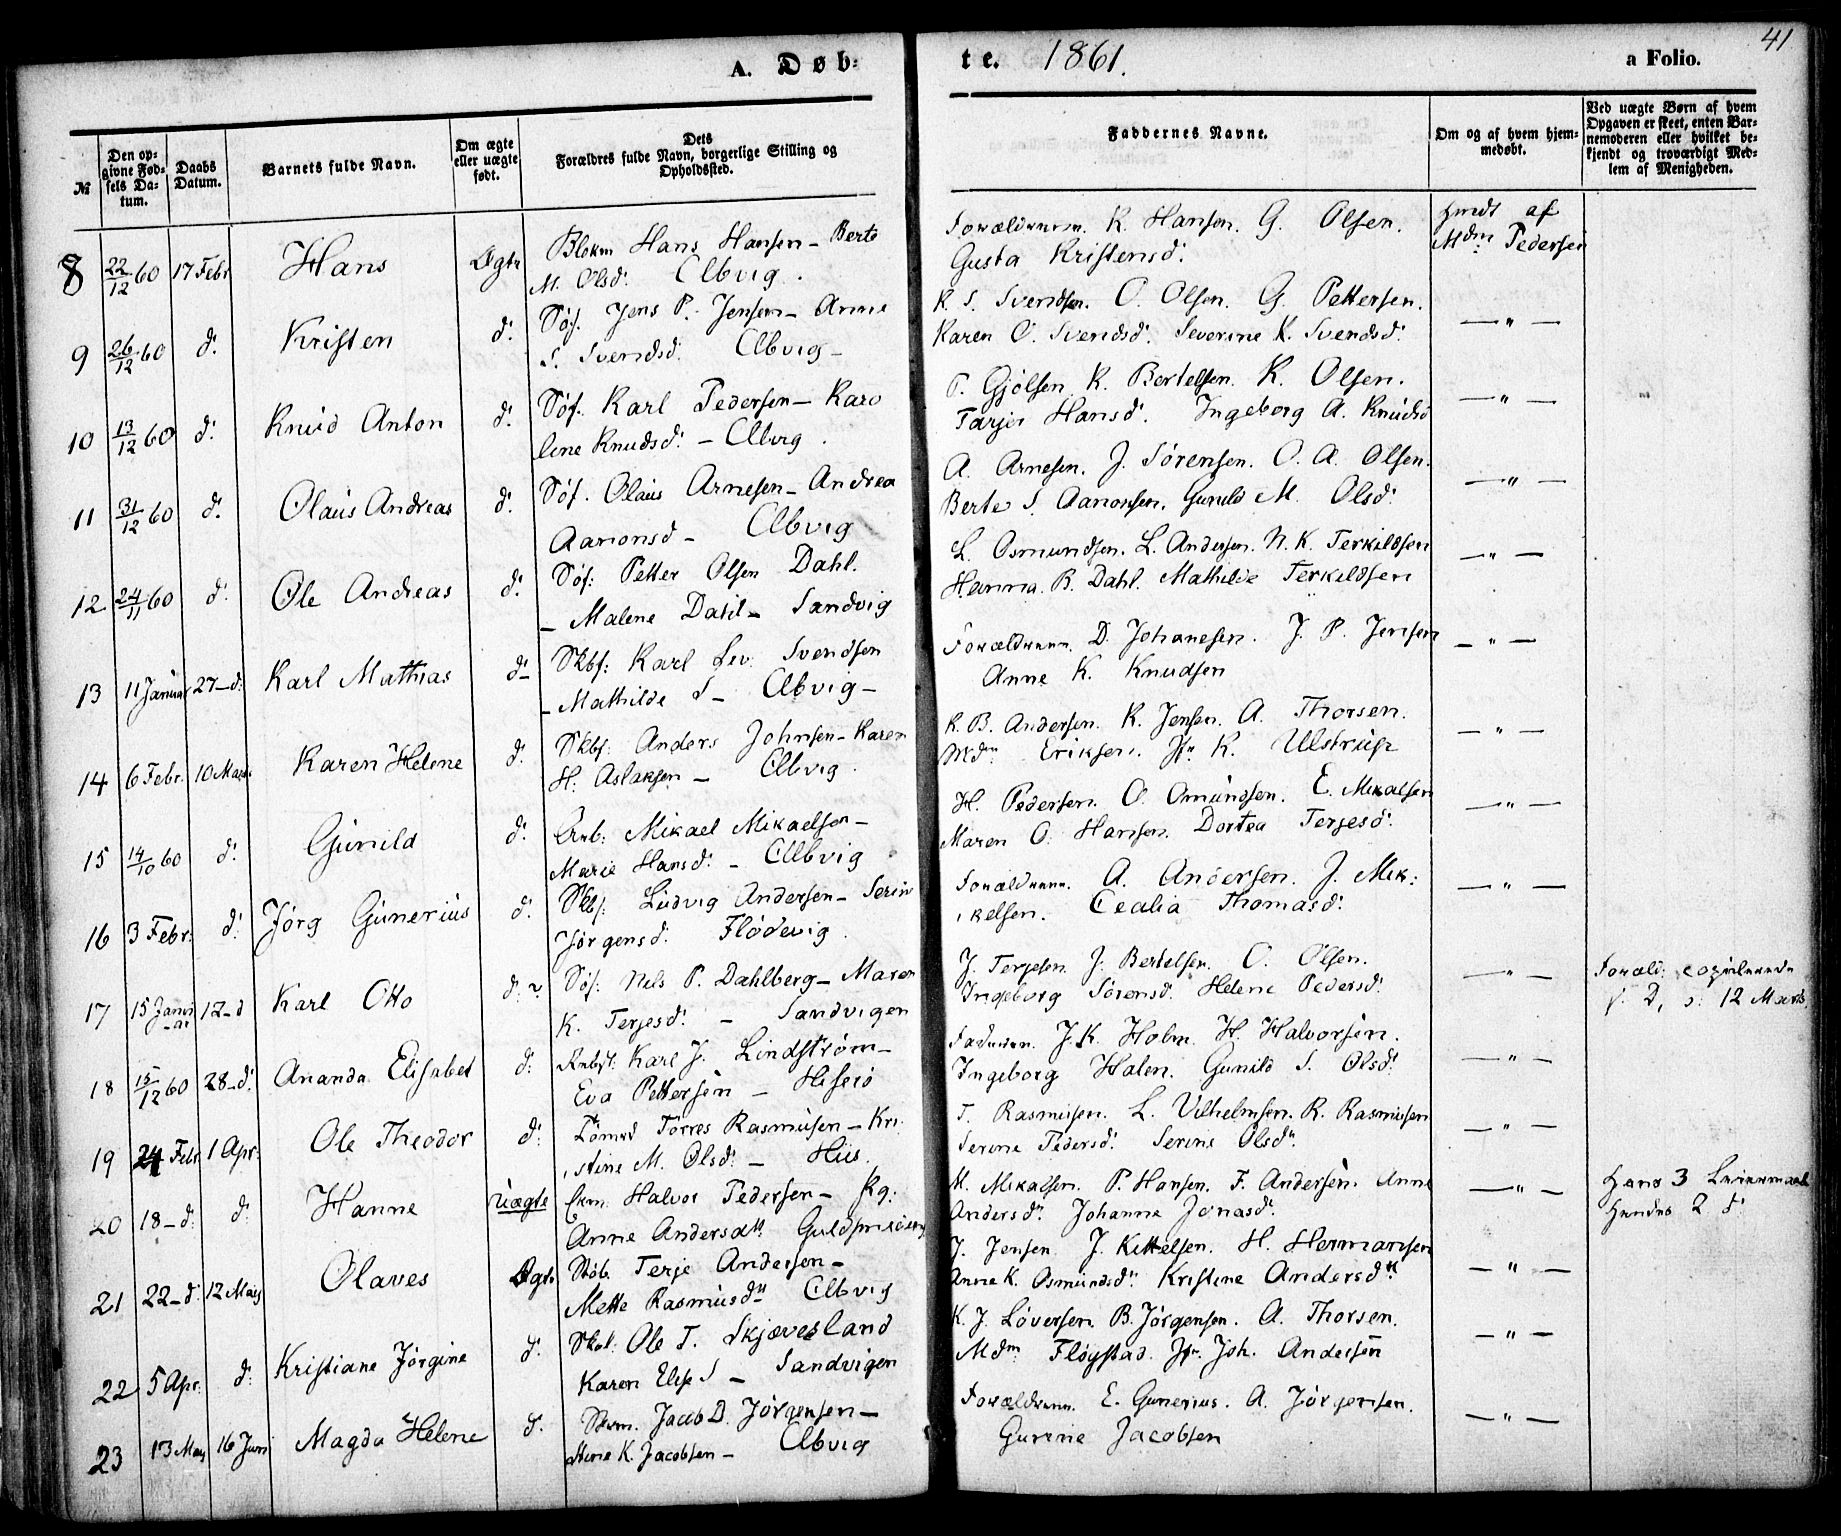 41
A. Døb-
te. 1861.
a Folio.
№
Den op-
givne Fød-
sels Da-
tum.
Daabs
Datum.
Barnets fulde Navn.
Om ægte
eller uægte
født.
Dets
Forældres fulde Navn, borgerlige Stilling og
Opholdssted.
Faddernes Navne.
Om og af hvem hjem-
medøbt.
Ved uægte Børn af hvem
Opgaven er skeet, enten Bar-
nemoderen eller hvilket be-
kjendt og troværdigt Med-
lem af Menigheden.
8 22/12 60 17 Febr Hans Ægte Blokm Hans Hansen – Berte
M. Olsd: Elbvig.
Forældrene. K. Hansen. G. Olsen.
Gusta Kristensd:
af
Mdm Pedersen
9 26/12 60 d: Kristen d: Søf. Jens P. Jensen – Anne
S. Svendsd: Elbvig –
K. S. Svendsen. O. Olsen. G. Pettersen.
Karen O. Svendsd: Severine K. Svendsd:
— " —
10 13/12 60 d: Knud Anton d: Søf. Karl Pedersen – Karo
line Knudsd: – Elbvig.
P. Gjølsen K. Bertelsen. K. Olsen.
Tarjer Hansd: Ingeborg A. Knudsd
— " —
11 31/12 60 d: Olaus Andreas d: Søf. Olaus Arnesen – Andrea
Aanonsd – Elbvig
A. Arnesen. J. Sörensen. O. A. Olsen.
Berte S. Aanonsen. Gunild M. Olsd:
— " —
12 24/11 60 d: Ole Andreas d: Søf: Petter Olsen Dahl.
– Malene Dahl – Sandvig
L. Osmundsen. L. Andersen. N. K. Terkildsen
Hanna. B. Dahl. Mathilde Terkildsen
— " —
13 11 Januar 27 – d: Karl Mathias d – Skbf: Karl Lev: Svendsen
– Mathilde S – Elbvig –
Forældrene. D. Johanesen. J. P. Jensen
Anne K. Knudsen
— " —
14 6 Febr. 10 Mars Karen Helene d: Skbf: Anders Johnsen – Karen
H. Aslaksen – Elbvig
K. B. Andersen. K. Jensen. A. Thorsen.
Mdm Eriksen. Jfr K. Ulstrup
— " —
15 14/10 60 d: Gunild d: Arb: Mikael Mikaelsen –
Marie Hansd: – Elbvig
H. Pedersen. O. Omundsen. E. Mikalsen
Maren O. Hansen. Dortea Terjesd:
— " —
16 3 Febr: d: Jørg Gunerius d: Skbf: Ludvig Andersen – Serine
Jørgensd. Flødevig.
Forældrene. A. Andersen. J. Mik:
kelsen. Cealia Thomasd:
— " —
17 15 Janu
ar 12 – d Karl Otto d: Søf: Nels P. Dahlberg – Maren
K. Terjesd: – Sandvigen
J. Terjesen. J. Bertelsen. O. Olsen.
Ingeborg Sörensd. Helene Pedersd:
— " —
Foræld: copulerede
12 Marts
18 15/12 60 28 – d: Ananda Elisabet d: Arbf: Karl J. Lindstrøm –
Eva Pettersen – Hisø
J. K. Holm. H. Halvorsen.
Ingeborg Halen. Gunild S. Olsd:
— " —
19 24 Febr 1 Apr: Ole Theodor d: Tömrd Torres Rasmusen – Kri
stine M. Olsd: – Hiis.
T. Rasmusen. L. Vilhelmsen. R. Rasmussen
Serine Pedersd: Serine Olsdr
— " —
20 18 – d: d: Hanne uægte Ekm. Halvor Pedersen – Pg:
Anne Andersdtr Guldsm
M. Mikalsen. P. Hansen. F. Andersen. Anne
Andersdr Johanne Jonasdr
— " —
Hans 3 Leiermaal
Hendes 2 d:
21 22 – d: 12 Maij Olaves Ægte Støb. Terje Andersen –
Mette Rasmusdtr Elbvig
J. Jensen J. Kittelsen. H. Hermansen
Anne K. Osmundsdr Kristine Andersdtr
— " —
22 5 Apr: d: Kristiane Jørgine d: Skol: Ole T. Skjævesland
Karen Elise S – Sandvigen
K. J. Löversen. B. Jørgensen. A. Thorsen.
Mdm Fløystad. Jfr. Joh. Andersen
— " —
23 13 Maij 16 Juni Magda Helene d: Jacob D. Jørgensen –
K. Jacobsen – Elbvig
Forældrene. E. Gunerius. A. Jørgensen.
Gurine Jacobsen
— " —